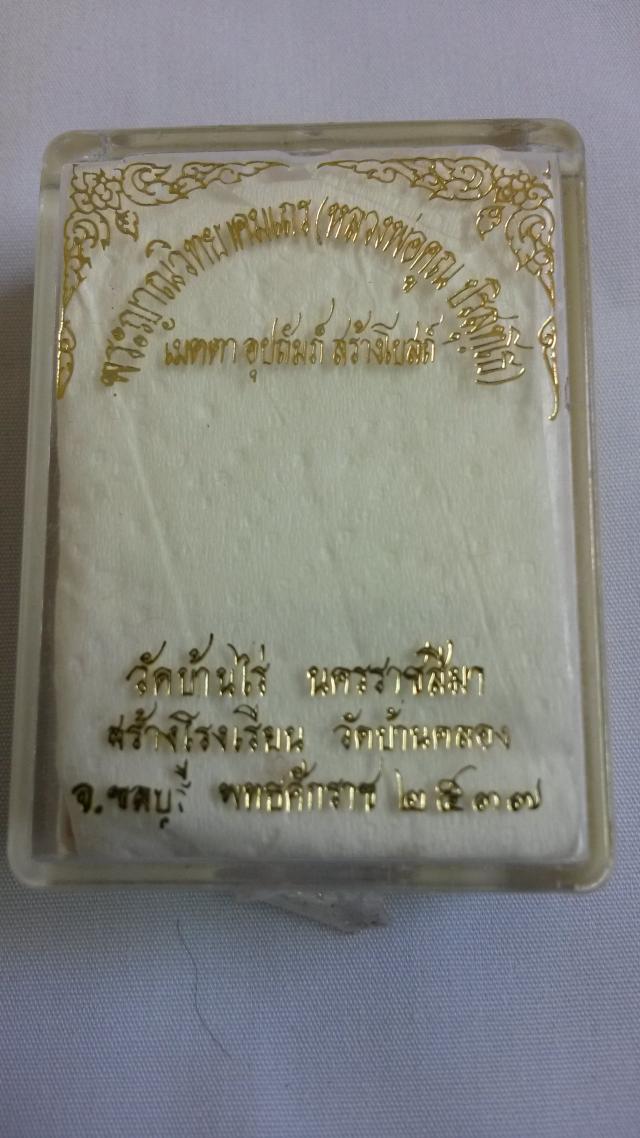 พระญาณวิทยาคมเถร (หลวงพ่อคูณ ปริสุทฺโธ)
เมตตา อุปถัมภ์ สร้างโบสถ์
วัดบ้านไร่ นครราชสีมา
สร้างโรงเรียน วัดบ้านคลอง
จ.ชลบุรี พุทธศักราช ๒๕๓๗